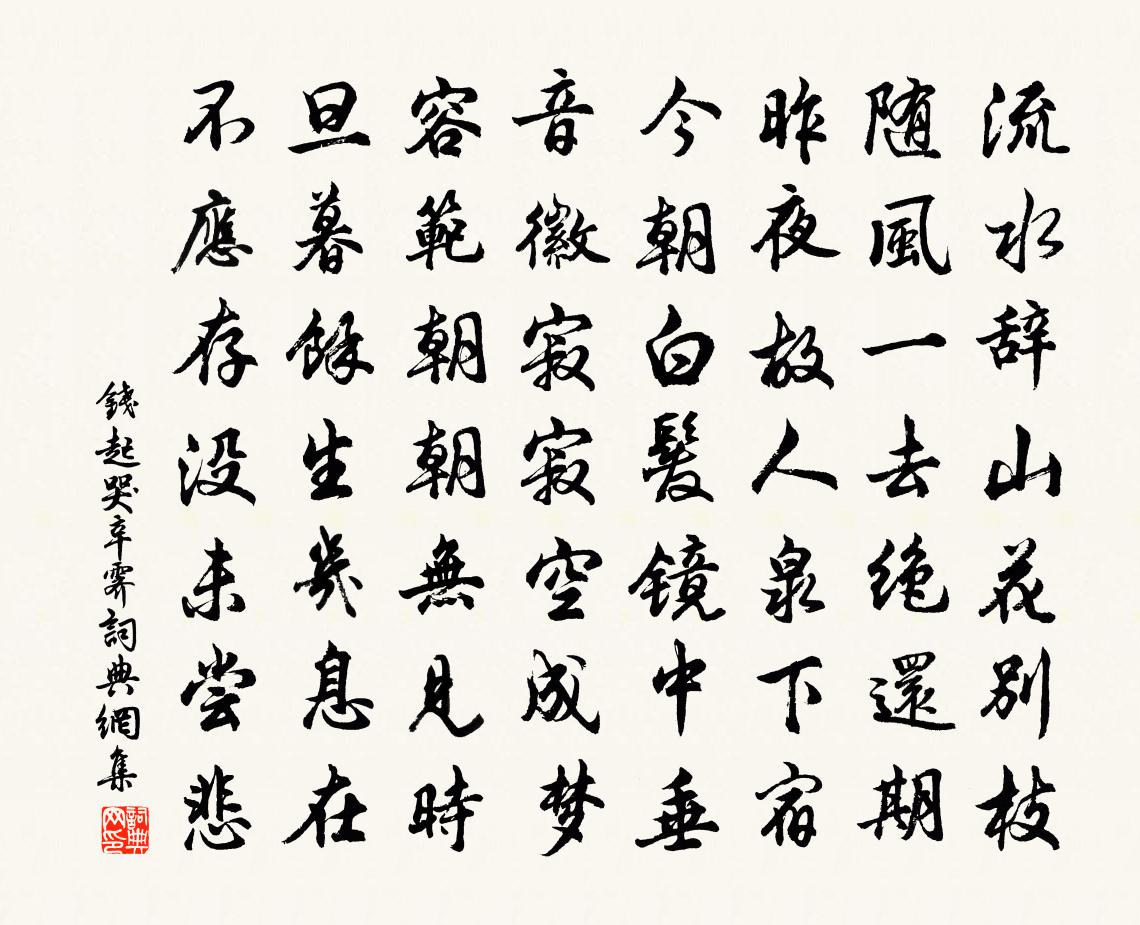 流水辞山花別枝
随風一去绝還期
昨夜故人泉下宿
今朝白髮镜中垂
音徽寂寂空成梦
容範朝朝無見時
旦暮餘生幾息在
不應存没未尝悲
錢起哭辛霽詞典網集
詞典网印